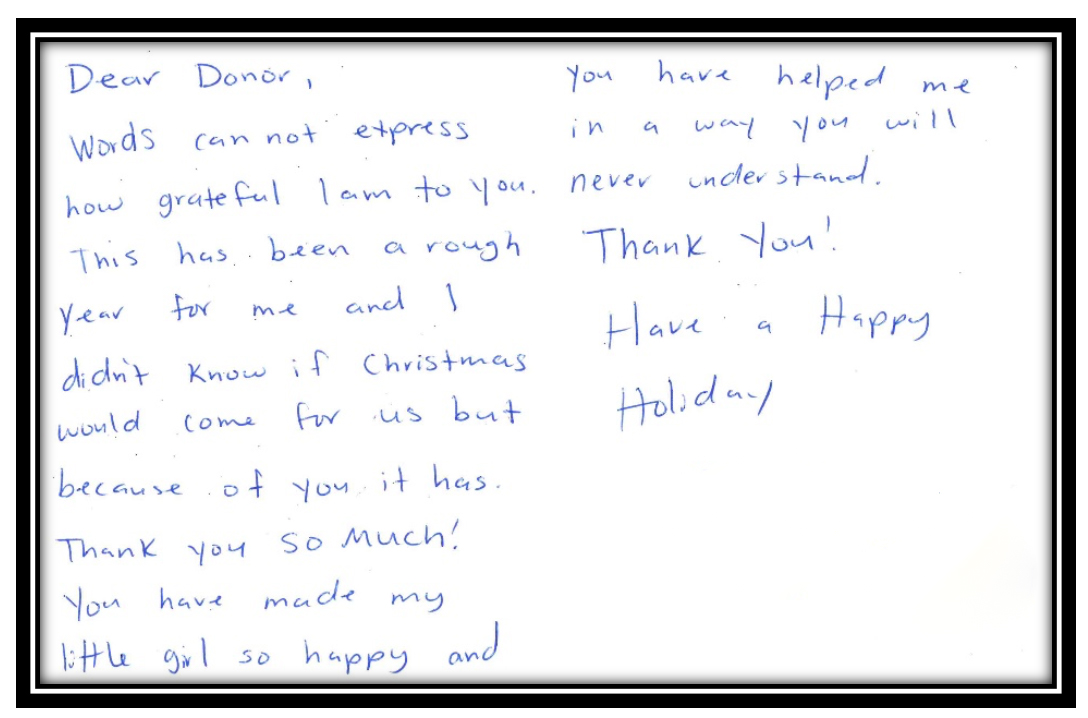 Dear Donor,
Words can not express
how grateful I am to you.
This has been a rough
year for me and I
didn't know if Christmas
would come for us but
because of you it has.
Thank you so much!
You have made my
little girl so happy and
you have helped me
in a way you will
never understand.
Thank you!
Have a Happy
Holiday